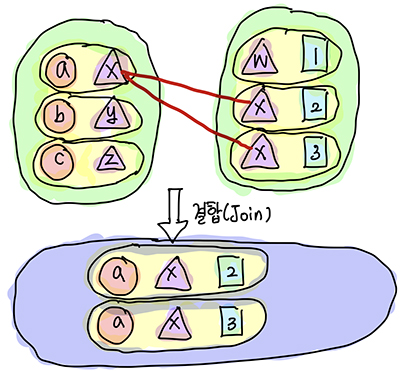 a x
b y
c z
w 1
x 2
x 3
결합(Join)
a x 2
a x 3